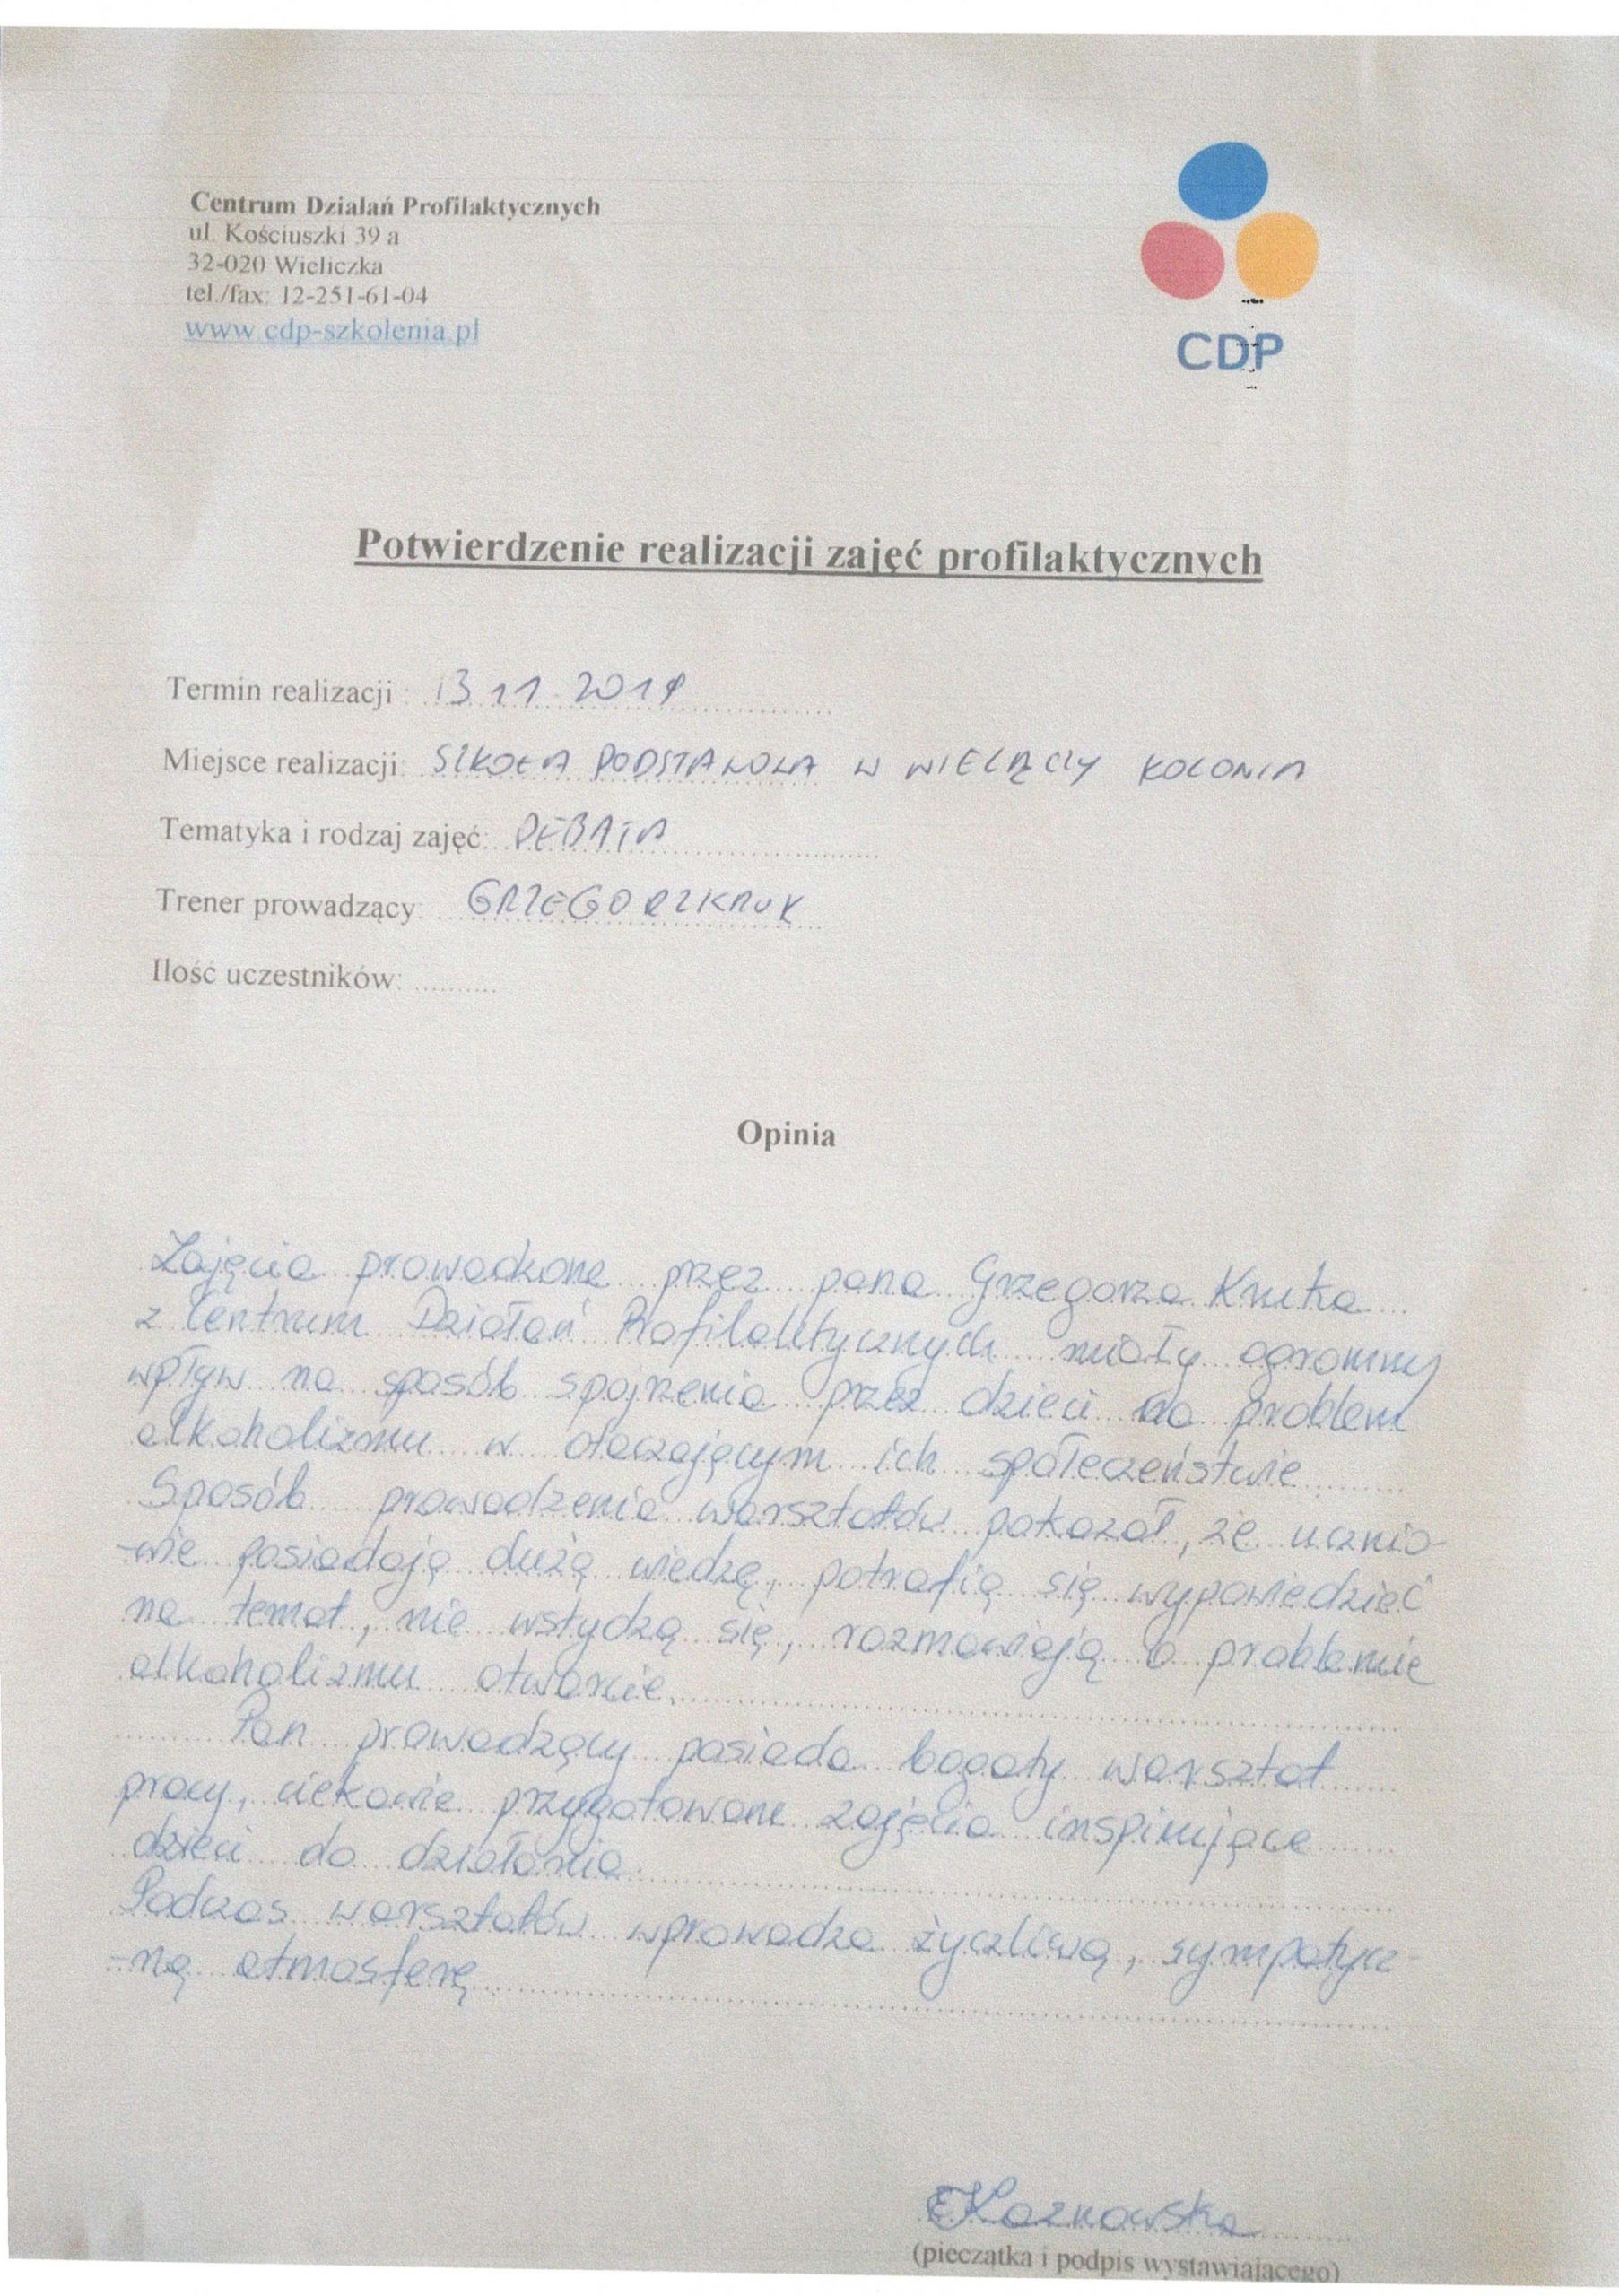 Centrum Działań Profilaktycznych
ul. Kościuszki 39 a
32-020 Wieliczka
tel./fax: 12-251-61-04
www.cdp-szkolenia.pl
CDP
Potwierdzenie realizacji zajęć profilaktycznych
Termin realizacji : 13.11.2019
Miejsce realizacji: SZKOŁA PODSTAWOWA W WIELĄCZY KOLONIA
Tematyka i rodzaj zajęć: DEBATA
Trener prowadzący: GRZEGORZ KRUK
Ilość uczestników: ..........
Opinia
Zajęcia prowadzone przez pana Grzegorza Kruka
z Centrum Działań Profilaktycznych miały ogromny
wpływ na sposób spojrzenia przez dzieci na problem
alkoholizmu w otaczającym ich społeczeństwie.
Sposób prowadzenia warsztatów pokazał, że ucznio-
-wie posiadają dużą wiedzę, potrafią się wypowiedzieć
na temat, nie wstydzą się, rozmawiają o problemie
alkoholizmu otwarcie.
Pan prowadzący posiada bogaty warsztat
pracy, ciekawie przygotowane zajęcia inspirujące
dzieci do działania.
Podczas warsztatów wprowadza życzliwą, sympatycz-
-ną atmosferę.
EKoznowska
(pieczątka i podpis wystawiającego)